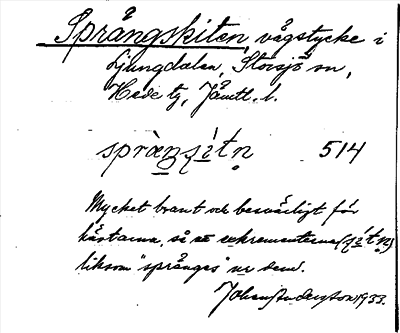 Språngskiten, vägstycke i
Ljungdalen, Storsjö sn,
Hede tg, Jämtl. l.
språŋʂı̀tn̥ 514
Mycket brant och besvärligt för
hästarna, så at exkrementerna (ʂı́tn̥)
liksom "språnges" ur dem.
Johan Anderson 1933.